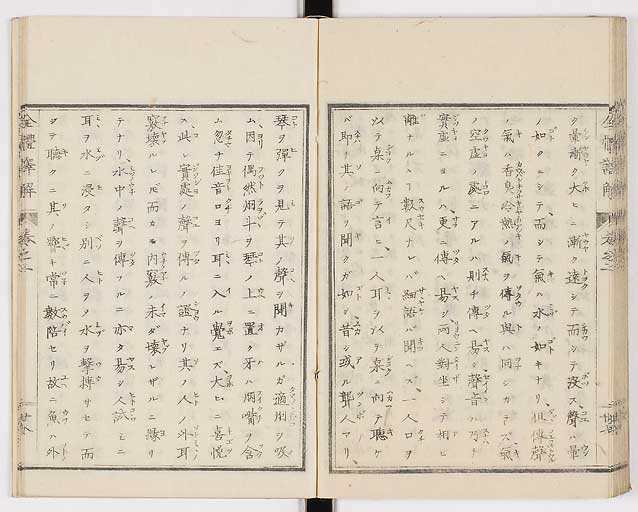 ク暈漸ク大ヒニ漸ク遠シテ而シテ没ス聲ハ暈
ノ如クニシテ而シテ氣ハ水ノ如キナリ但傳聲
ノ氣ハ香臭冷熱ノ氣ヲ傳ル與ハ同シカラズ氣
ノ空虚ノ處ニアルハ則チ傳ヘ易シ聲音ハ乃チ
實虚ニヨルハ更ニ傳ヘ易シ両人對坐シテ相ヒ
離ナルヿ数尺ナレバ細語ハ聞ヘズ一人口ヲ
以テ桌ニ向テ言ニ一人耳ヲ以テ桌ニ向ア聴ケ
バ即チ其ノ語ヲ聞クガ如シ昔シ或ル聾人アリ
琴ヲ彈クヲ見テ其ノ聲ヲ聞カザルガ適烟ヲ吸
ム因テ偶然烟斗ヲ琴ノ上ニ置ク牙ハ烟嘴ヲ含
ム忽チ佳音口ヨリ耳ニ入ル覺エズ大ヒニ喜悦
ス此レ實處ノ聲ヲ傳ルノ證ナリ其ノ人ノ外耳
竅壊ルレ𪜈而カモ内竅ノ未ダ壊レザルニ縁リ
テナリ水中ノ聲ヲ傳フルニ亦タ易シ人試ミニ
耳ヲ水ニ浸タシ別ニ人ヲメ水ヲ撃搏サセテ而
シテ聴クニ其ノ聲キ常ニ數陪セリ故ニ魚ハ外
全體
解
卷之二